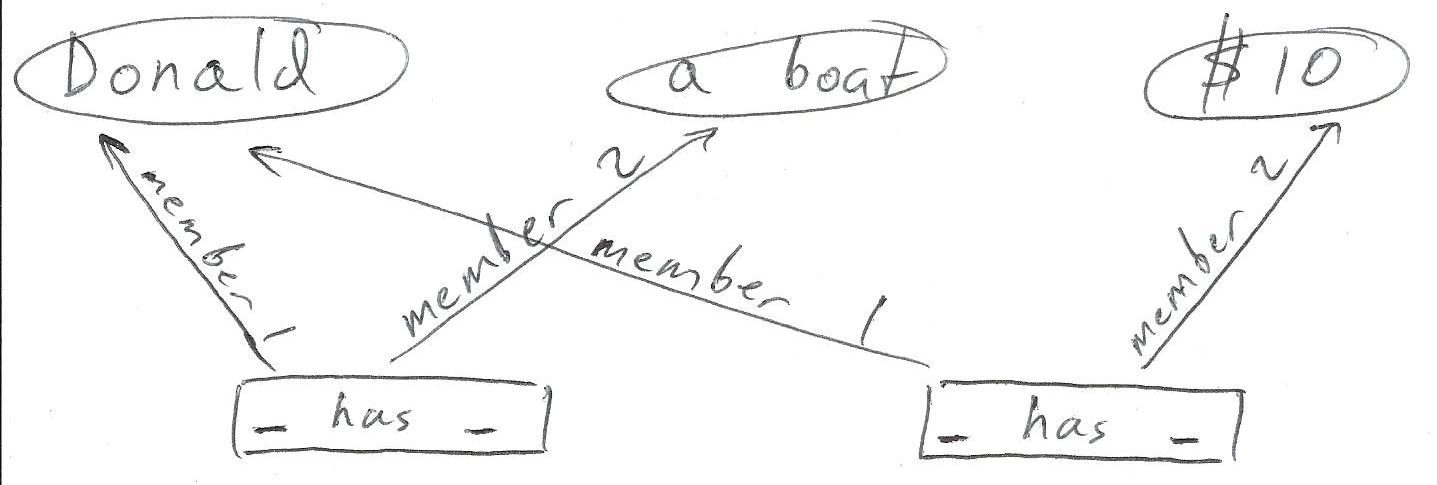 Donald
a boat
$10
member 1
member 2
member 1
member 2
_ has _
_ has _